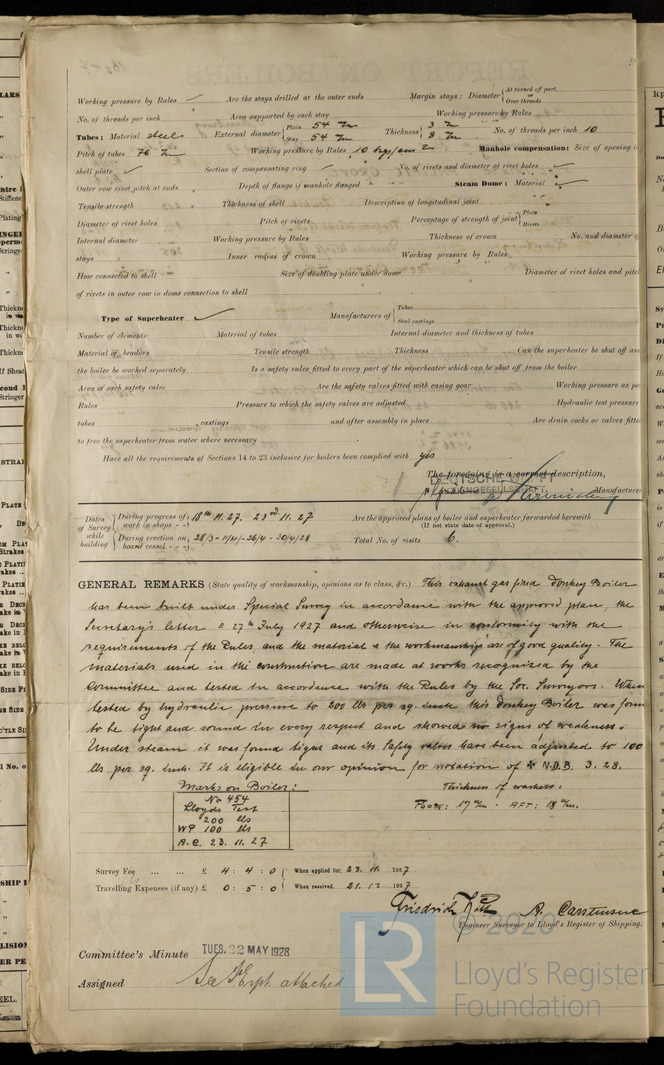 Working pressure by Rules Are the stays drilled at the outer ends Margin stays: Diameter { At turned off part, or Over threads
No. of threads per inch Area supported by each stay Working pressure by Rules
Tubes: Material steel External diameter { Plain 54 m/m Stay 54 m/m Thickness { 3 m/m 8 m/m No. of threads per inch 10
Pitch of tubes 76 m/m Working pressure by Rules 10 Manhole compensation: Size of opening i
shell plate Section of compensating ring No. of rivets and diameter of rivet holes
Outer row rivet pitch at ends Depth of flange if manhole flanged Steam Dome: Material
Tensile strength Thickness of shell Description of longitudinal joint
Diameter of rivet holes Pitch of rivets Percentage of strength of joint { Plate Rivets
Internal diameter Working pressure by Rules Thickness of crown No. and diameter o
stays Inner radius of crown Working pressure by Rules
How connected to shell Size of doubling plate under dome Diameter of rivet holes and pitc
of rivets in outer row in dome connection to shell
Type of Superheater Manufacturers of { Tubes Steel castings
Number of elements Material of tubes Internal diameter and thickness of tubes
Material of headers Tensile strength Thickness Can the superheater be shut off an
the boiler be worked separately Is a safety valve fitted to every part of the superheater which can be shut off from the boiler
Area of each safety valve Are the safety valves fitted with easing gear Working pressure as pe
Rules Pressure to which the safety valves are adjusted Hydraulic test pressure
tubes castings and after assembly in place Are drain cocks or valves fitte
to free the superheater from water where necessary
Have all the requirements of Sections 14 to 23 inclusive for boilers been complied with yes
The foregoing is a correct description,
DEUTSCHE WERFT
AKTIENGESELLSCHAFT Manufacture
Dates of Survey while building { During progress of work in shops - - 18th 11. 27. 23rd 11. 27 Are the approved plans of boiler and superheater forwarded herewith
(If not state date of approval.)
During erection on board vessel - - - 28/3 - 11/4 - 26/4 - 30/4/28 Total No. of visits 6.
GENERAL REMARKS (State quality of workmanship, opinions as to class, &c.) This exhaust gas fired Donkey Boiler
has been built under Special Survey in accordance with the approved plan, the
Secretary's letter E 27th July 1927 and otherwise in conformity with the
requirements of the Rules, and the material & the workmanship are of good quality. The
materials used in the construction are made at works recognized by the
Committee and tested in accordance with the Rules by the Soc. Surveyors. When
tested by hydraulic pressure to 200 lbs per sq. inch this Donkey Boiler was foun
to be tight and sound in every respect and showed no signs of weakness.
Under steam it was found tight and its Safety valves have been adjusted to 100
lbs per sq. inch. It is eligible in our opinion for notation of ✠ N.D.B. 3. 28.
Marks on Boiler: Thickness of washers:
No 454
Lloyds Test Forw: 17 m/m. - AFT: 18 m/m.
200 lbs
WP 100 lbs
A.C. 23. 11. 27
Survey Fee ... ... £ 4 : 4 : 0 When applied for, 23. 11. 1927
Travelling Expenses (if any) £ 0 : 5 : 0 When received, 21. 12 1927
Friedrich A. Carstensen
Engineer Surveyor to Lloyd's Register of Shipping.
Committee's Minute TUES. 22 MAY 1928
Assigned See Rpt attached
© 2020
LR
Lloyd's Register
Foundation